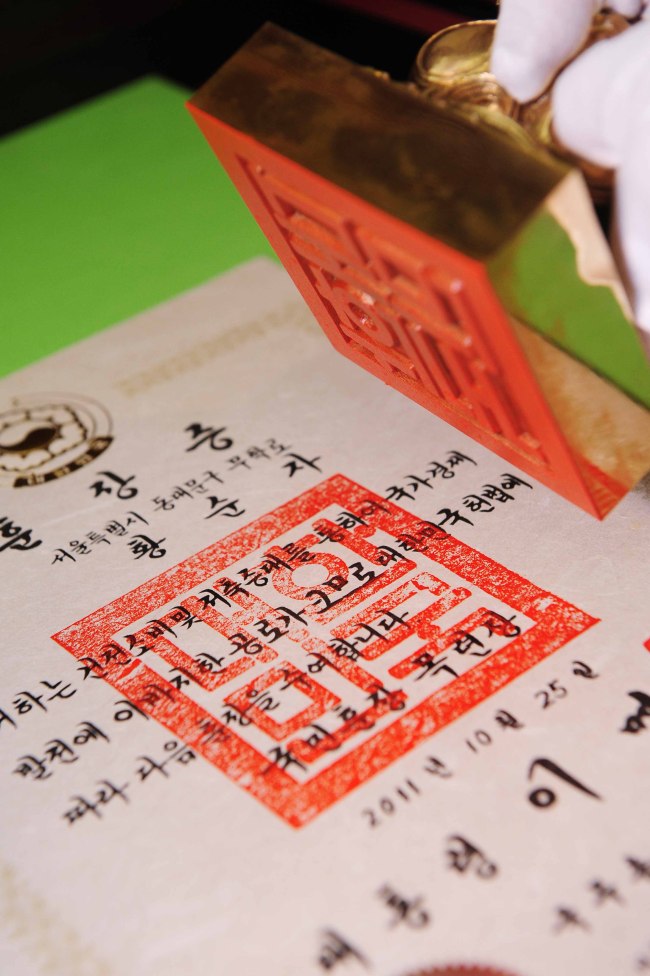 훈 장 증
서울특별시 동대문구 무학로
황 순 자
하는 건전소비 및 저축증대를 통하여 국가경제
발전에 이바지한 공로가 크므로 대한민국 헌법에
따라 다음 훈장을 수여합니다
국민훈장 목련장
2011년 10월 25일
대통령 이 명
대한민국